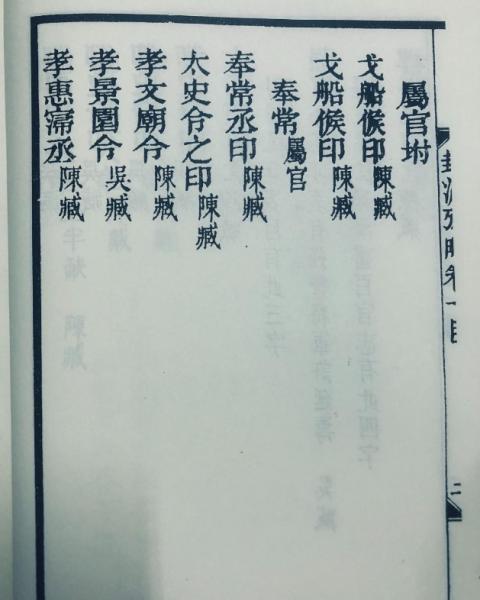 封泥攷略卷一目 二
屬官坿
戈船候印 陳臧
戈船候印 陳臧
奉常屬官
奉常丞印 陳臧
太史令之印 陳臧
孝文廟令 陳臧
孝景園令 吳臧
孝惠寑丞 陳臧